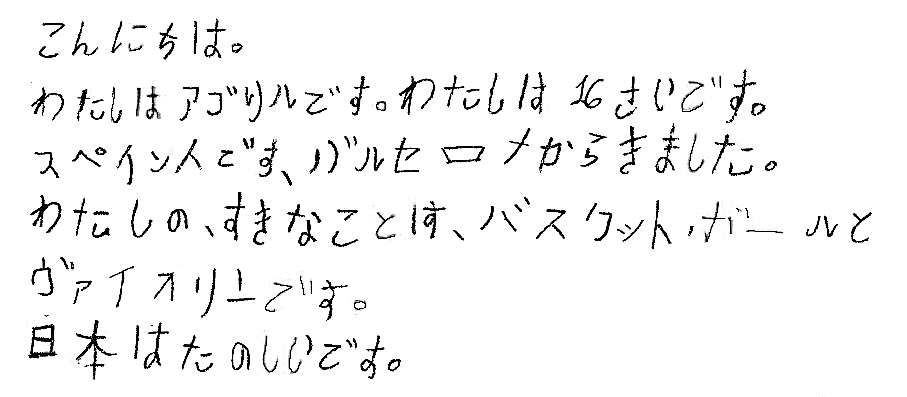 こんにちは。
わたしはアゴリルです。わたしは16さいです。
スペイン人です、バルセロナからきました。
わたしの、すきなことは、バスケット・ボールと
ヴァイオリーです。
日本はたのしいです。